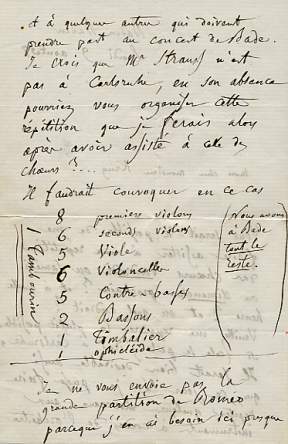 et à quelques autres qui doivent
prendre part au concert de Bade.
Je crois que Mr Strauss n'est
pas à Carlsruhe, en son absence
pourriez vous organiser cette
répétition que je ferais alors
après avoir assisté à celle des
chœurs ?....
Il faudrait convoquer en ce cas
8 premiers violons
6 seconds violons
5 Viole
6 Violoncelles
5 Contre-basses
2 Bassons
1 Timbalier
1 ophicléide
1 Tambourin
(Nous avons
à Bade
tout le
reste.
Je ne vous envoie pas la
grande partition de Romeo
parceque j'en ai besoin ici presque